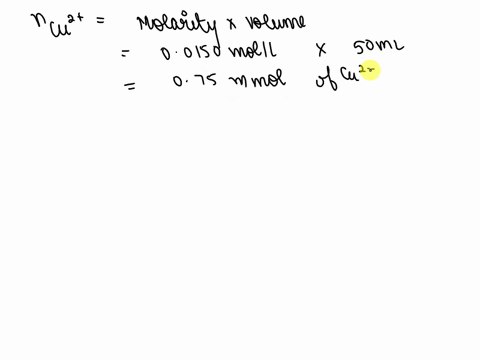 n Cu²⁺ = Molarity x volume
= 0.0150 mol/L x 50mL
= 0.75 mmol of Cu²⁺